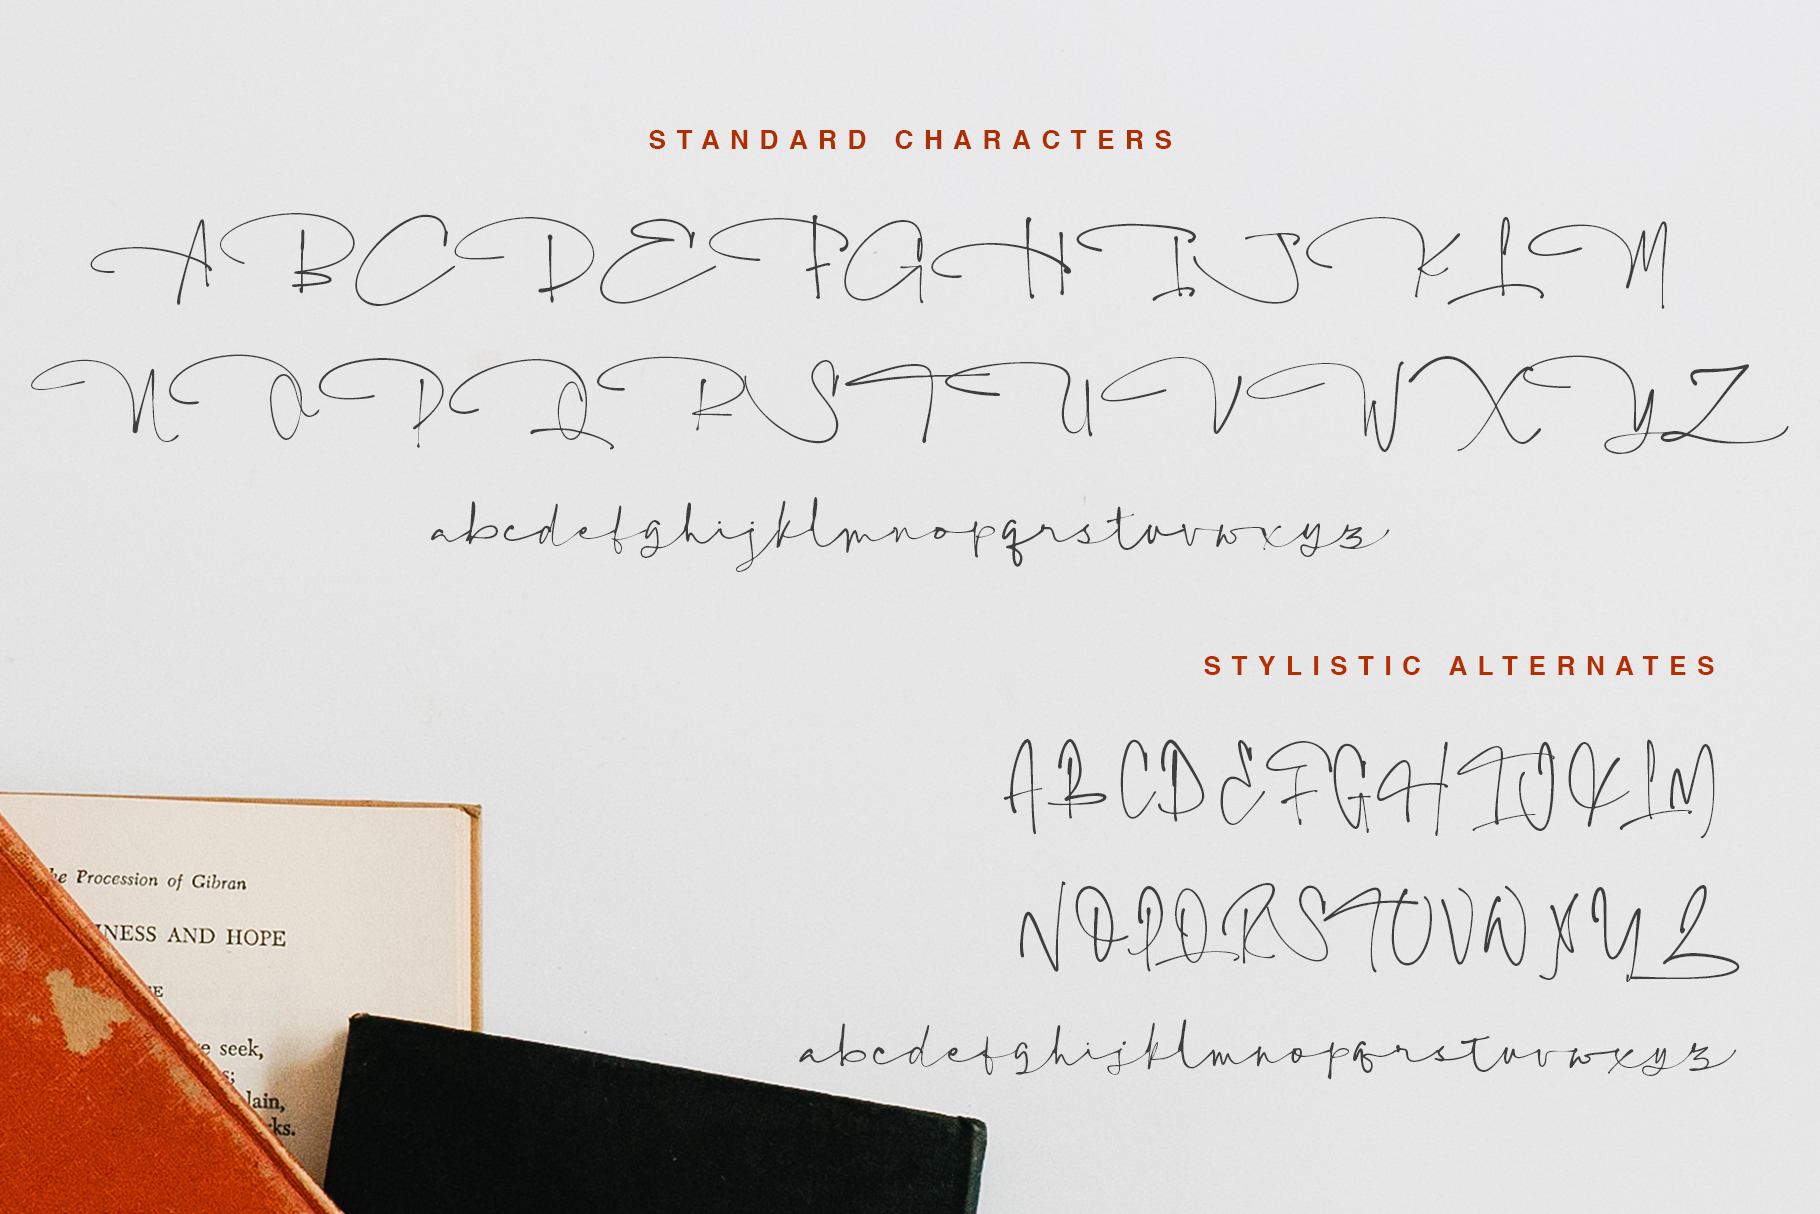 STANDARD CHARACTERS
ABCDEFGHIJKLM
NOPQRSTUVWXYZ
abcdefghijklmnopqrstuvwxyz
STYLISTIC ALTERNATES
ABCDEFGHIJKLM
NOPQRSTUVWXYZ
abcdefghijklmnopqrstuvwxyz
Procession of Gibran
AND HOPE
seek,